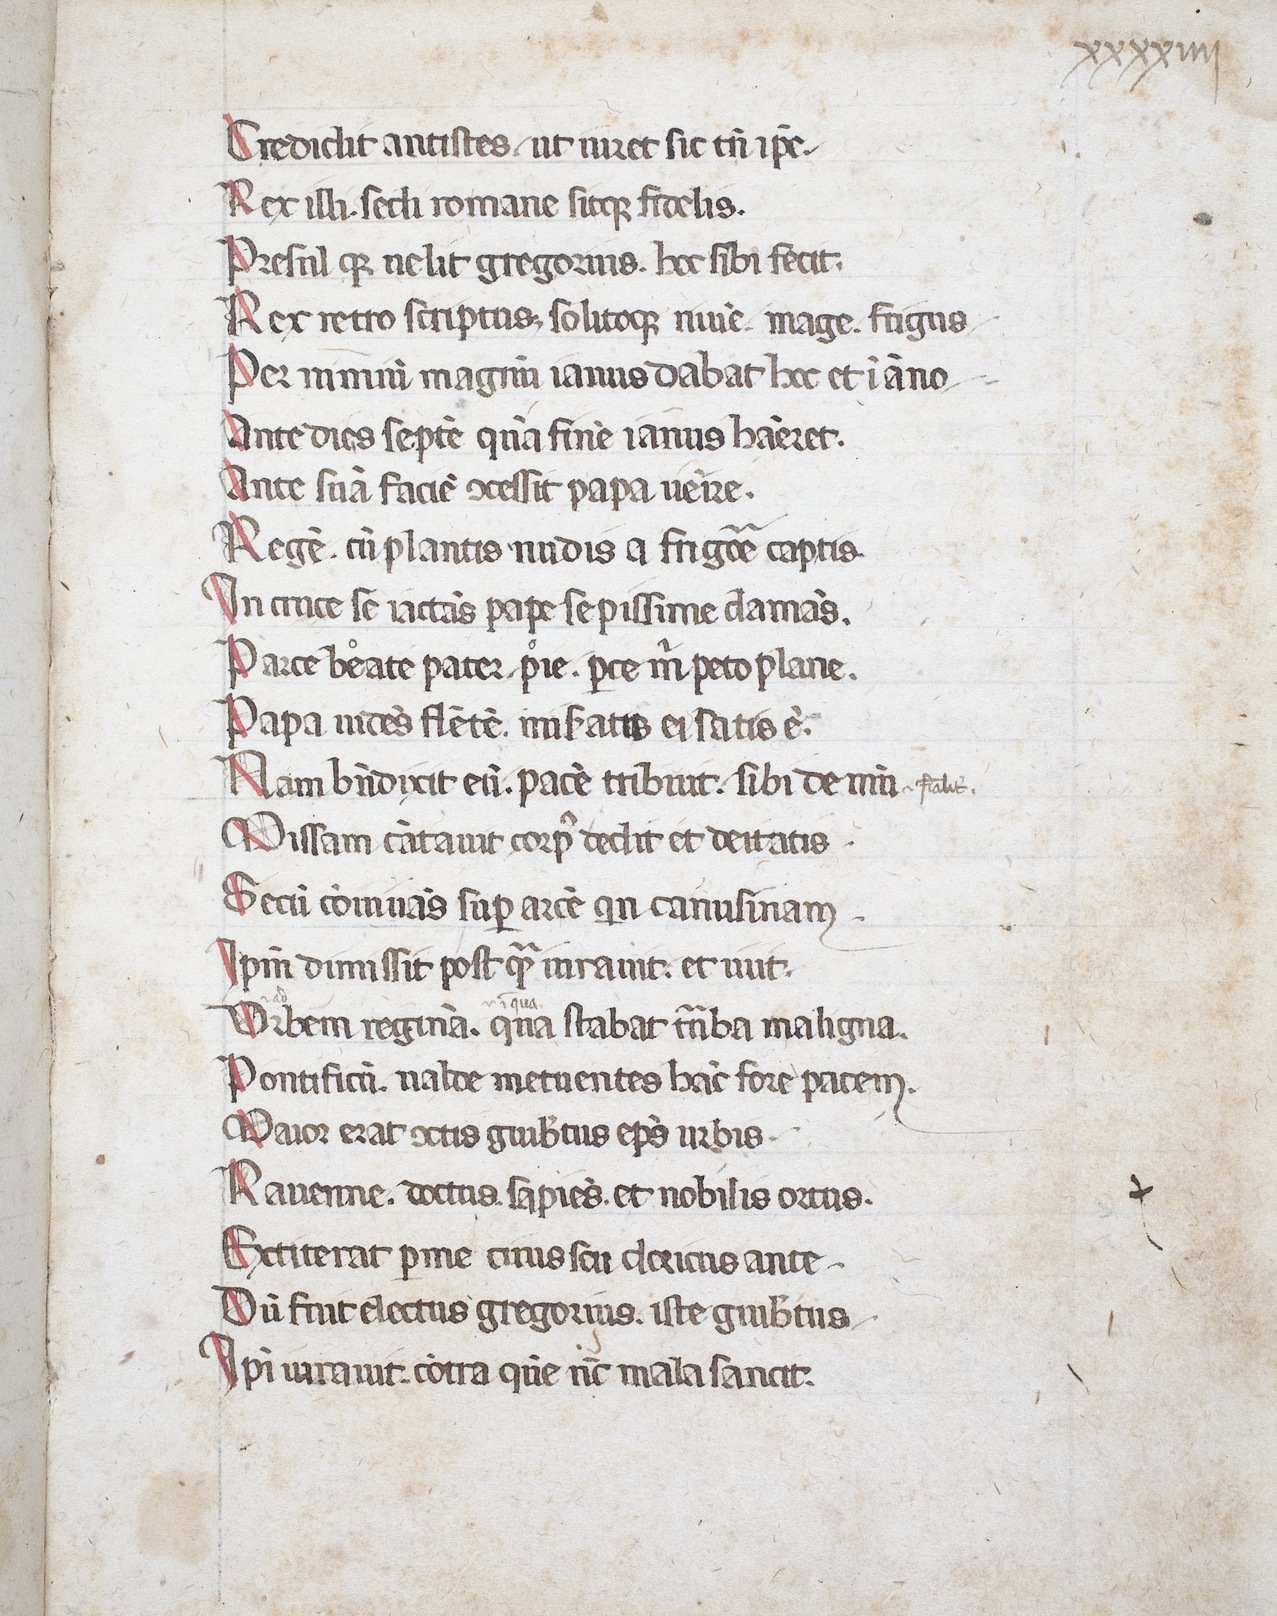 xxxxiiij
Credidit antistes. ut iuret sic tn̄ ip̄e.
Rex illi. sedi romane sitqꝫ fidelis.
Presul qꝫ uelit gregorius. hoc sibi fecit.
Rex retro scriptus. solitoqꝫ niuē. mage. frigus
Per nimiū magnū ianus dabat hoc et ī āno
Ante dies septē quā finē ianus hāeret.
Ante suā faciē ꝯcessit papa uēire.
Regē. cū plantis nudis a frigoꝛe captis.
In cruce se iactās pape sepissime clamās.
Parce beate pater. pie. ꝑce m̄ peto plane.
Papa uidēs flētē. miẜatus ei satis ē.
Nam bn̄dixit eū. pacē tribuit. sibi de mū
Missam cātauit corpꝰ dedit et deitatis
Secū cōuiuās suꝑ arcē qn̄ canusinam
Ipm̄ dimisit postqͣ iurauit. et iuit.
ad ī qua
Urbem reginā. qua stabat tr̄ba maligna.
Pontificū. ualde metuentes hāc fore pacem.
Maior erat ꝯctis guib̄tus ep̄s urbis
Rauenne. doctus. sapiēs. et nobilis ortus.
Extiterat ꝑme cuius seu clericus ante
Dū fuit electus gregorius. iste guib̄tus
Ipi iurauit. cōtra quē nc̄ mala sancit.